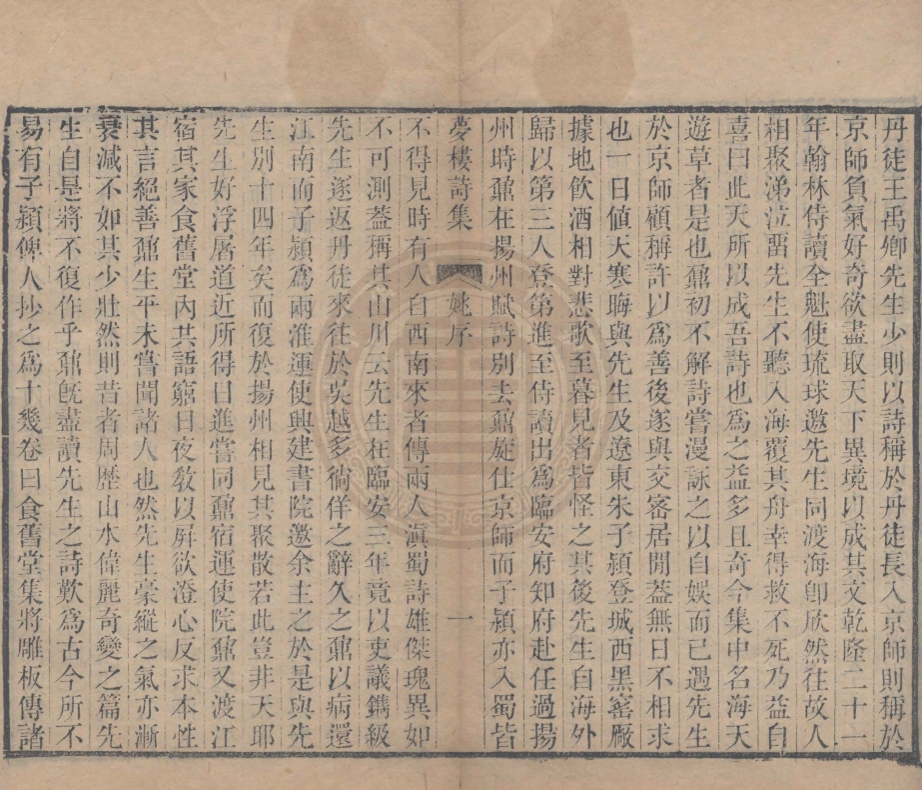 丹徒王禹卿先生少則以詩稱於丹徒長入京師則稱於
京師負氣好奇欲盡取天下異境以成其文乾隆二十一
年翰林侍讀全魁使琉球邀先生同渡海卽欣然往故人
相聚涕泣畱先生不聽入海覆其舟幸得救不死乃益自
喜曰此天所以成吾詩也爲之益多且奇今集中名海天
遊草者是也鼐初不解詩嘗漫詠之以自娛而已遇先生
於京師顧稱許以爲善後遂與交客居閒蓋無日不相求
也一日値天寒晦與先生及遼東朱子潁登城西黑窰厰
據地飮酒相對悲歌至暮見者皆怪之其後先生自海外
歸以第三人登第進至侍讀出爲臨安府知府赴任過揚
州時鼐在揚州賦詩別去鼐旋仕京師而子潁亦入蜀皆
夢樓詩集 姚序 一
不得見時有人自西南來者傳兩人滇蜀詩雄傑瑰異如
不可測蓋稱其山川云先生在臨安三年竟以吏議鐫級
先生遂返丹徒來往於吳越多徜徉之辭久之鼐以病還
江南而子潁爲兩淮運使興建書院邀余主之於是與先
生別十四年矣而復於揚州相見其聚散若此豈非天耶
先生好浮屠道近所得日進嘗同鼐宿運使院鼐又渡江
宿其家食舊堂內共語窮日夜敎以屛欲澄心反求本性
其言絕善鼐生平未嘗聞諸人也然先生豪縱之氣亦漸
衰減不如其少壯然則昔者周歷山水偉麗奇變之篇先
生自是將不復作乎鼐旣盡讀先生之詩歎爲古今所不
易有子潁俾人抄之爲十幾卷曰食舊堂集將雕板傳諸